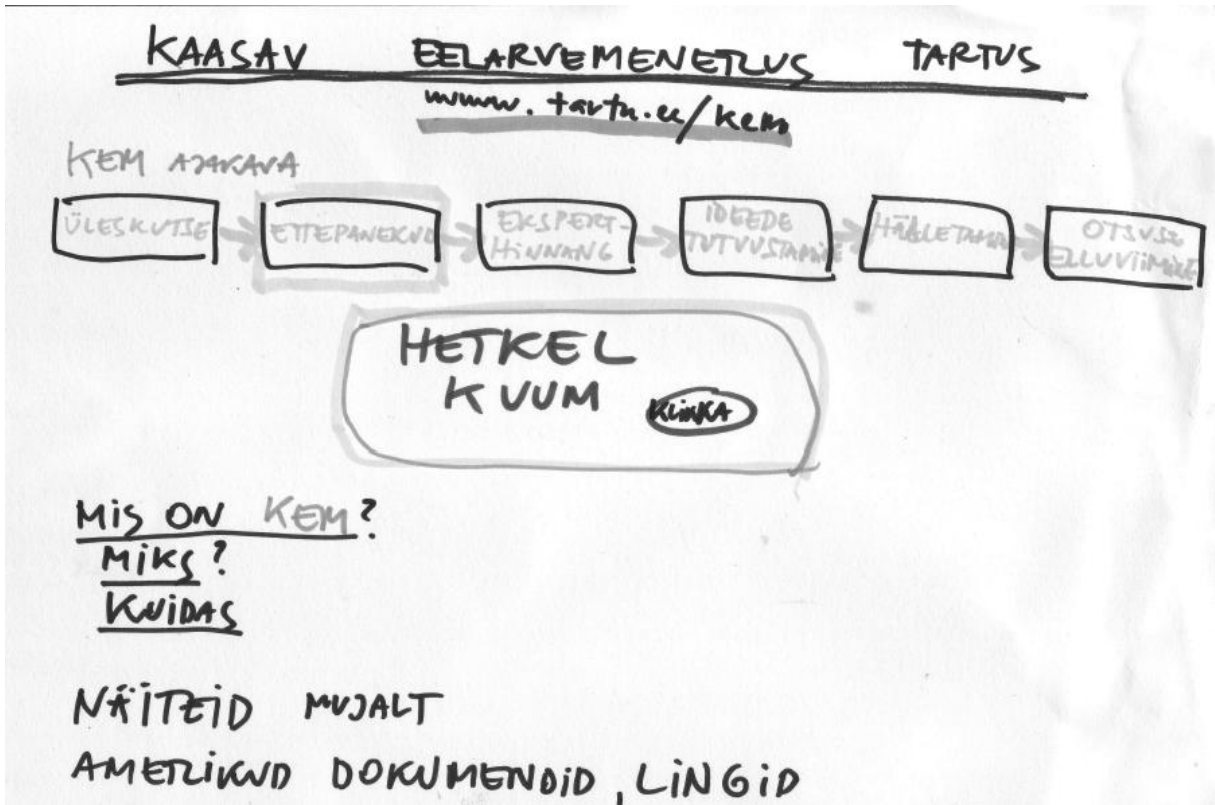 KAASAV EELARVEMENETLUS TARTUS
www.tartu.ee/kem
KEM AJAKAVA
ÜLESKUTSE
ETTEPANEKUD
EKSPERT-
HINNANG
IDEEDE
TUTVUSTAMINE
HÄÄLETAMINE
OTSUSE
ELLUVIIMINE
HETKEL
KUUM
KLIKKA
MIS ON KEM?
MIKS?
KUIDAS
NÄITEID MUJALT
AMETLIKUD DOKUMENDID, LINGID